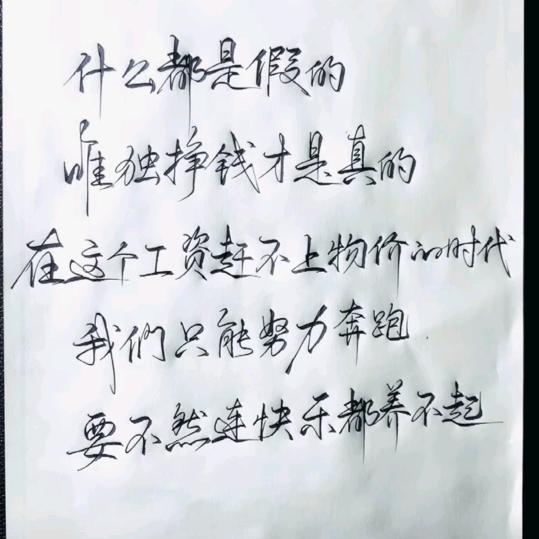 什么都是假的
唯独挣钱才是真的
在这个工资赶不上物价的时代
我们只能努力奔跑
要不然连快乐都养不起